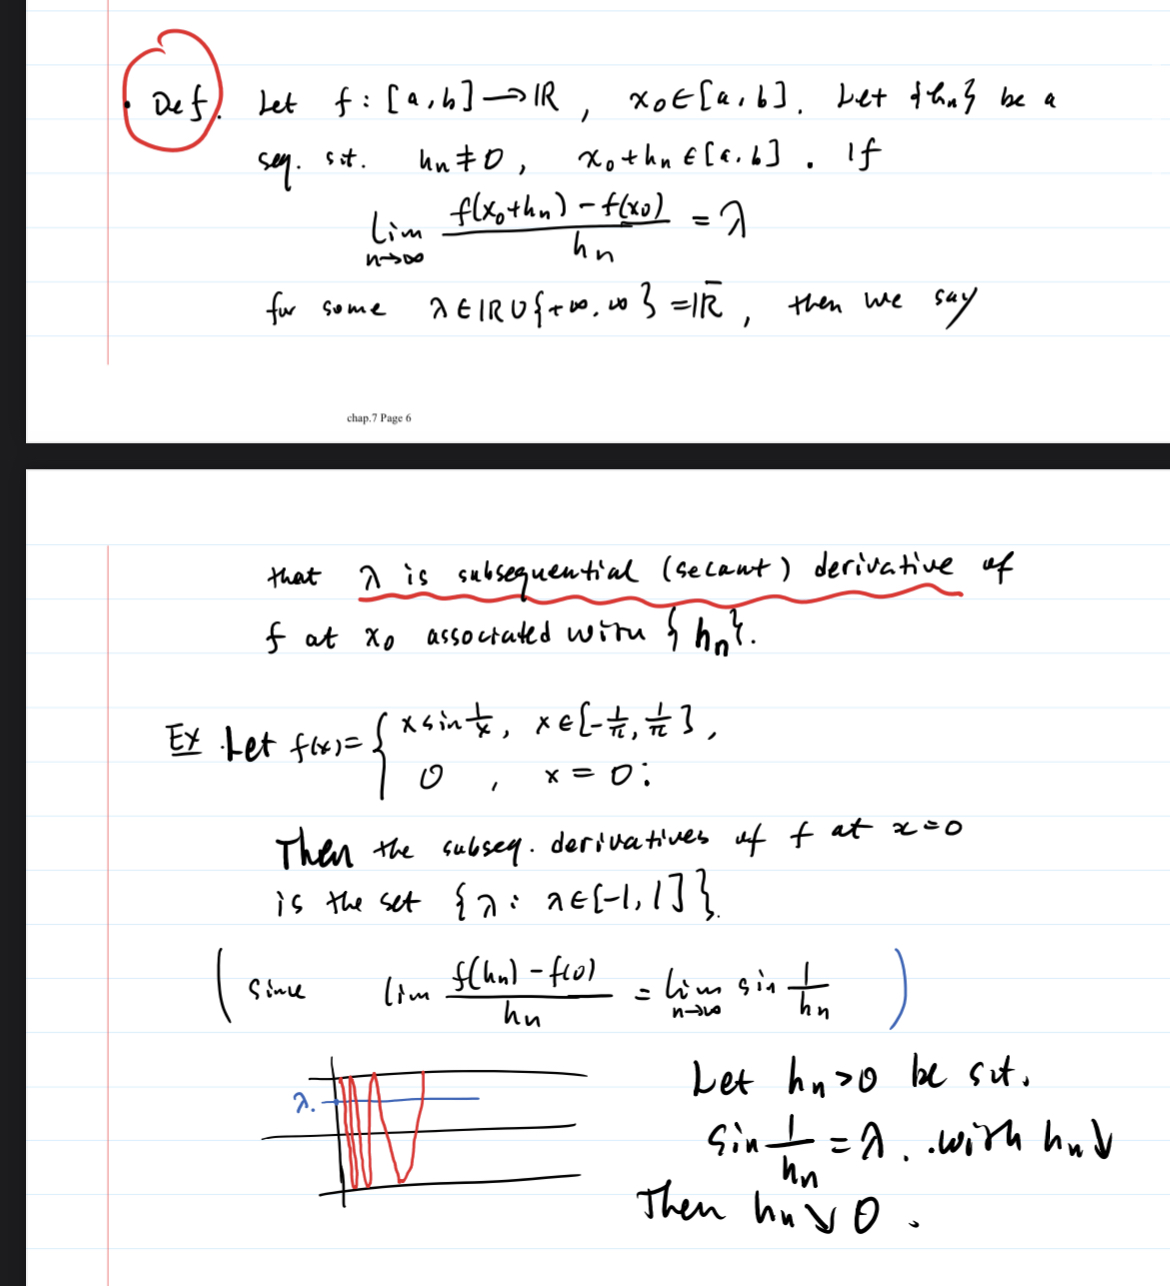 • Def. Let f : [a,b] → ℝ, x₀∈[a,b]. Let {hₙ} be a
seq. s.t. hₙ≠0, x₀+hₙ∈[a,b]. If
lim n→∞ (f(x₀+hₙ) - f(x₀))/hₙ = λ
for some λ∈ℝ∪{+∞,∞} = ℝ̄, then we say
chap.7 Page 6
that λ is subsequential (secant) derivative of
f at x₀ associated with {hₙ}.
Ex. Let f(x)= { x sin 1/x, x∈[-1/π, 1/π],
0, x = 0:
Then the subseq. derivatives of f at x=0
is the set {λ: λ∈[-1,1]}.
( since lim (f(hₙ) - f(0))/hₙ = lim n→∞ sin 1/hₙ )
λ.
Let hₙ>0 be s.t.
sin 1/hₙ = λ. .with hₙ↓
Then hₙ↘0.